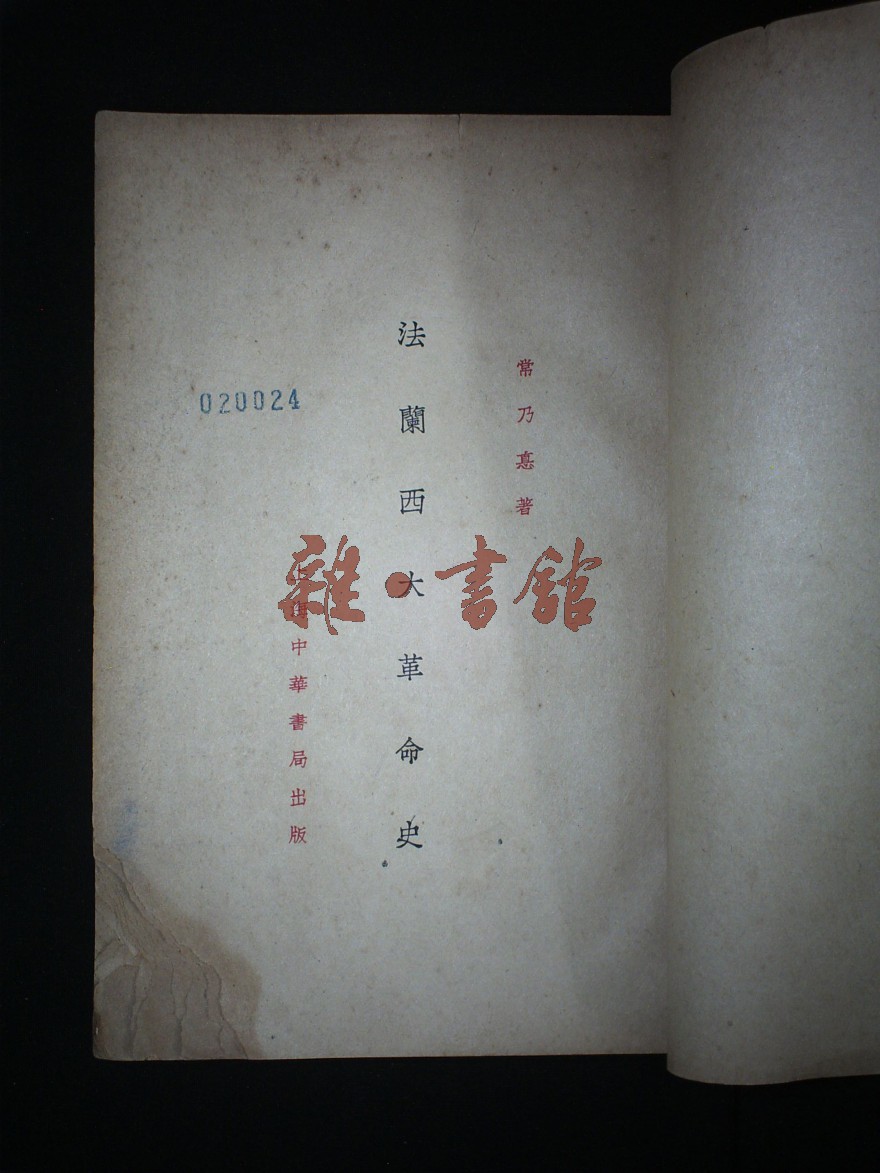 常乃惪著
法蘭西大革命史
上海中華書局出版
020024
雜·書館